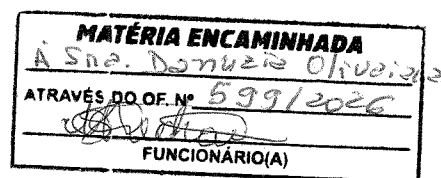 MATÉRIA ENCAMINHADA
À Sna. Danuzia Oliveira
ATRAVÉS DO OF. Nº 599/2026
FUNCIONÁRIO(A)